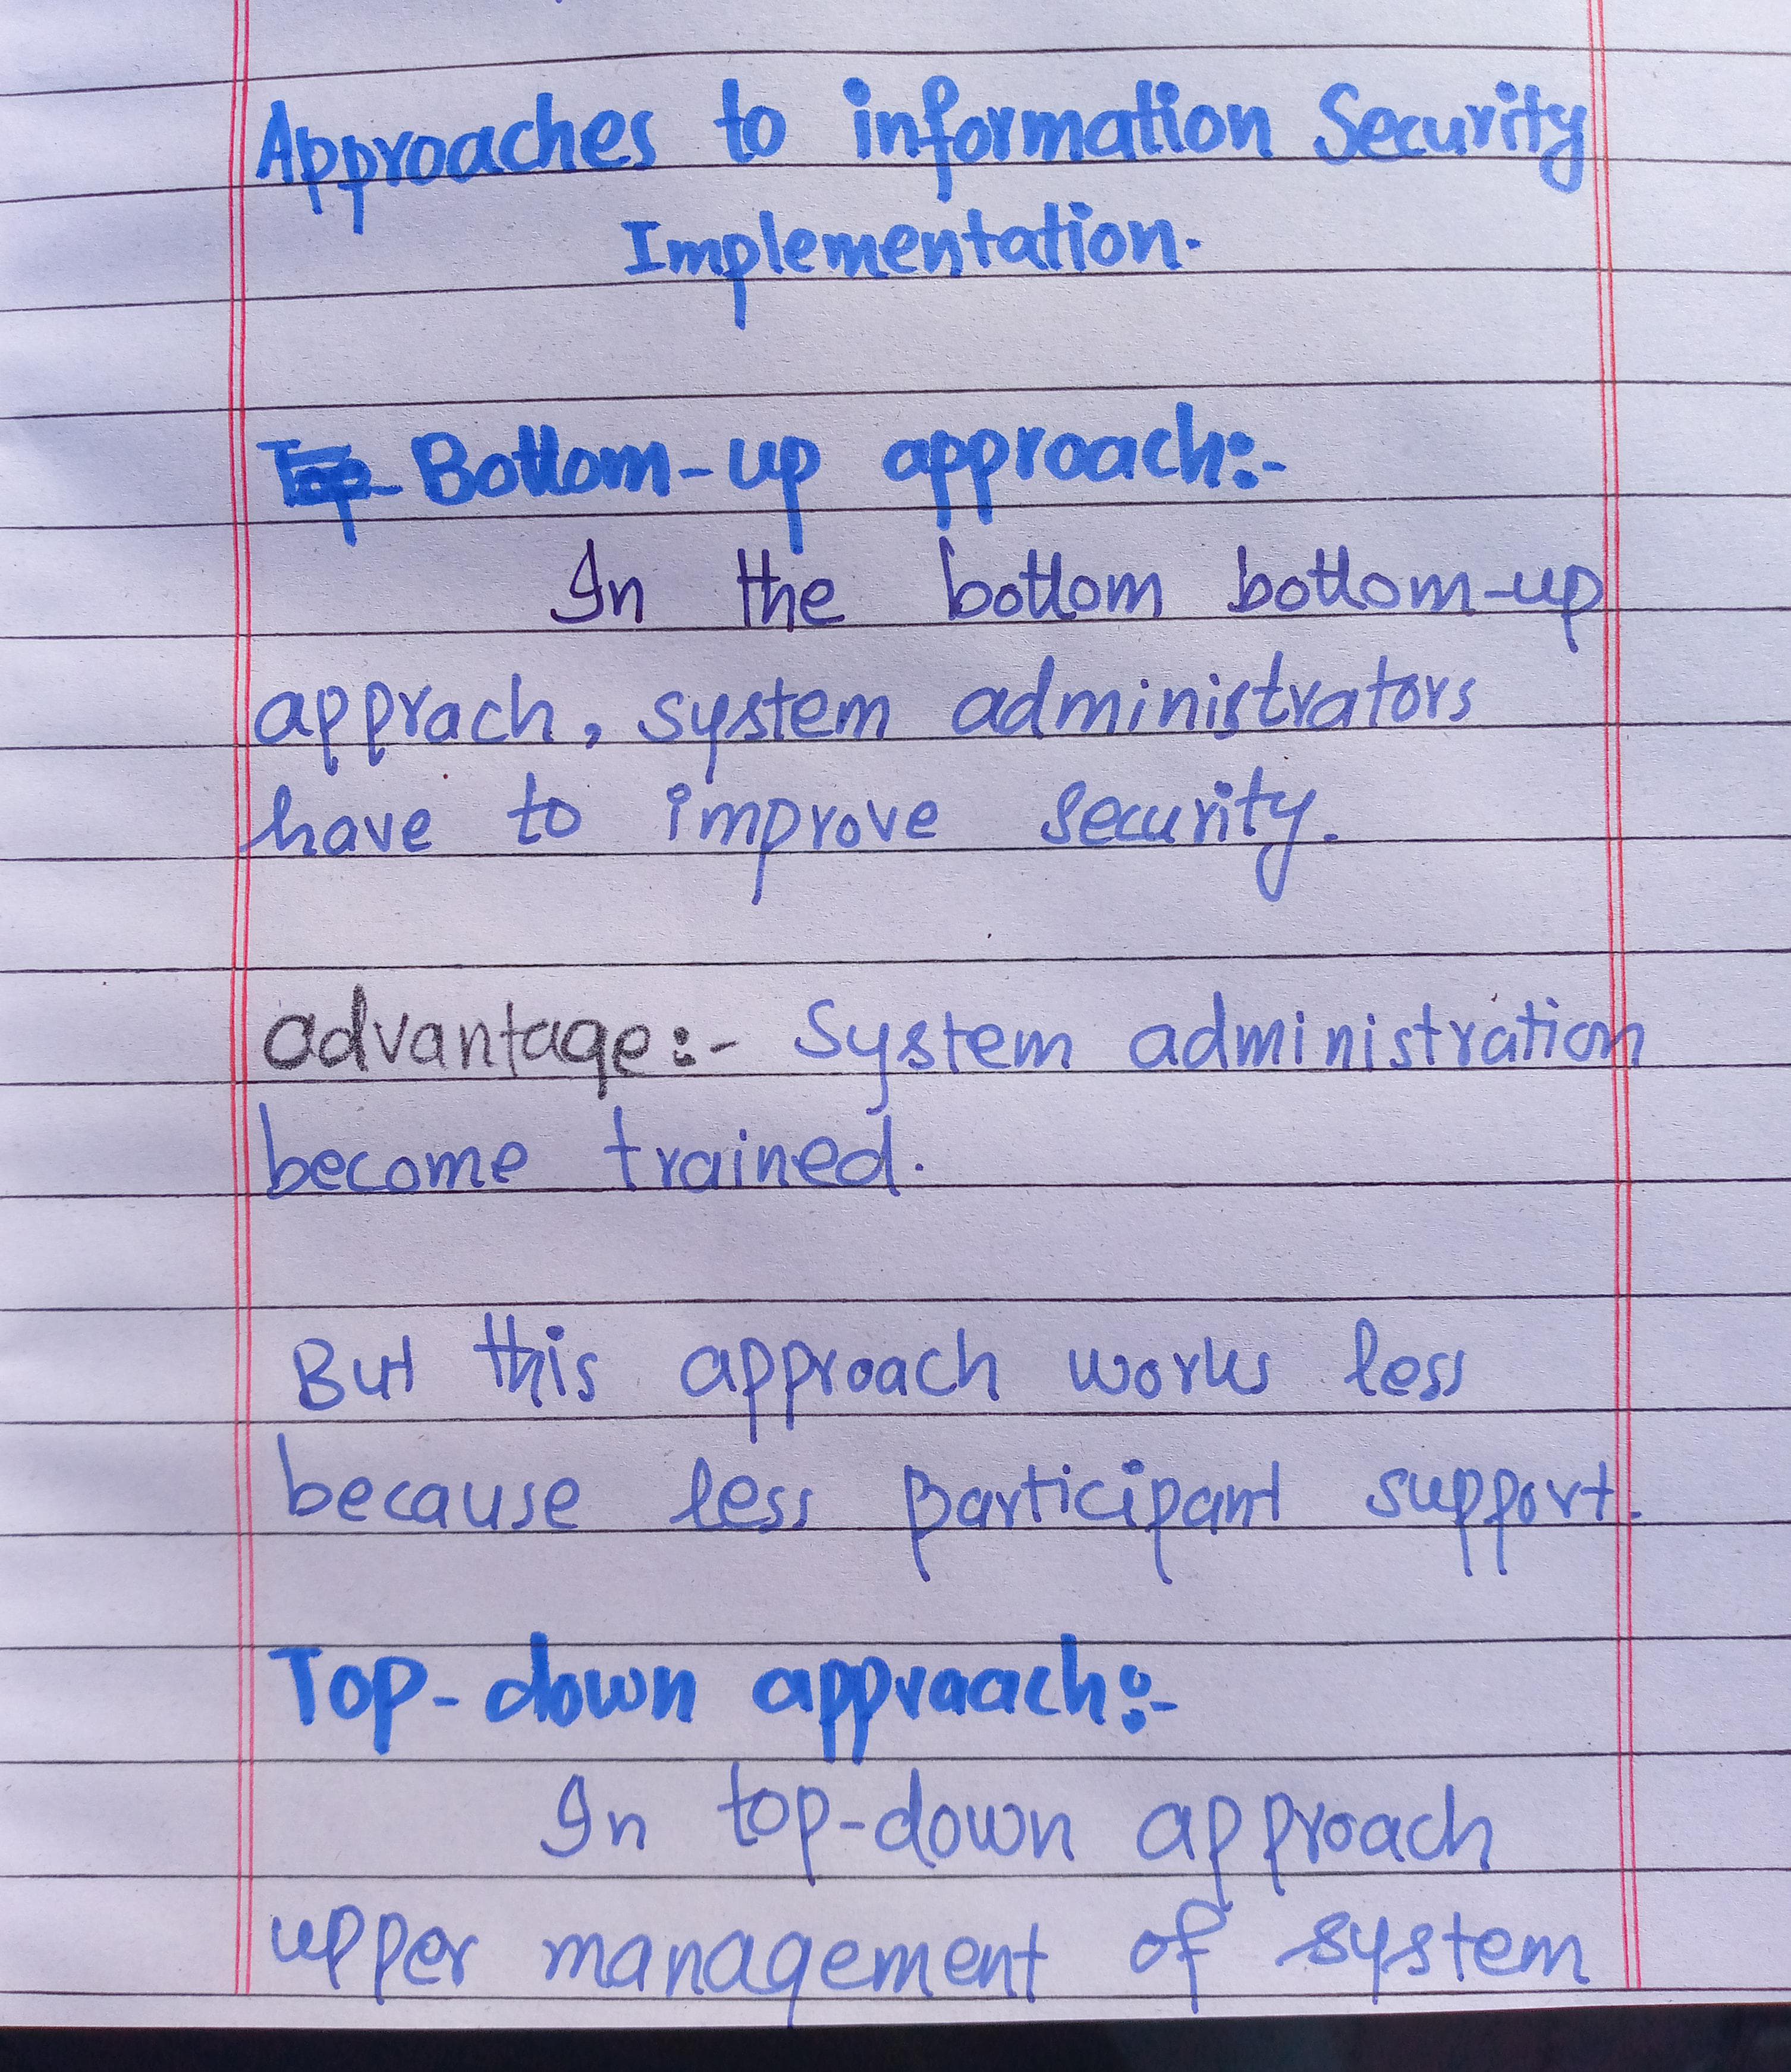 Approaches to information Security
Implementation.
Top- Bottom-up approach:-
In the bottom bottom-up
apprach, system administrators
have to improve security.
advantage:- System administration
become trained.
But this approach works less
because less participant support.
Top-down appraach:-
In top-down approach
upper management of system